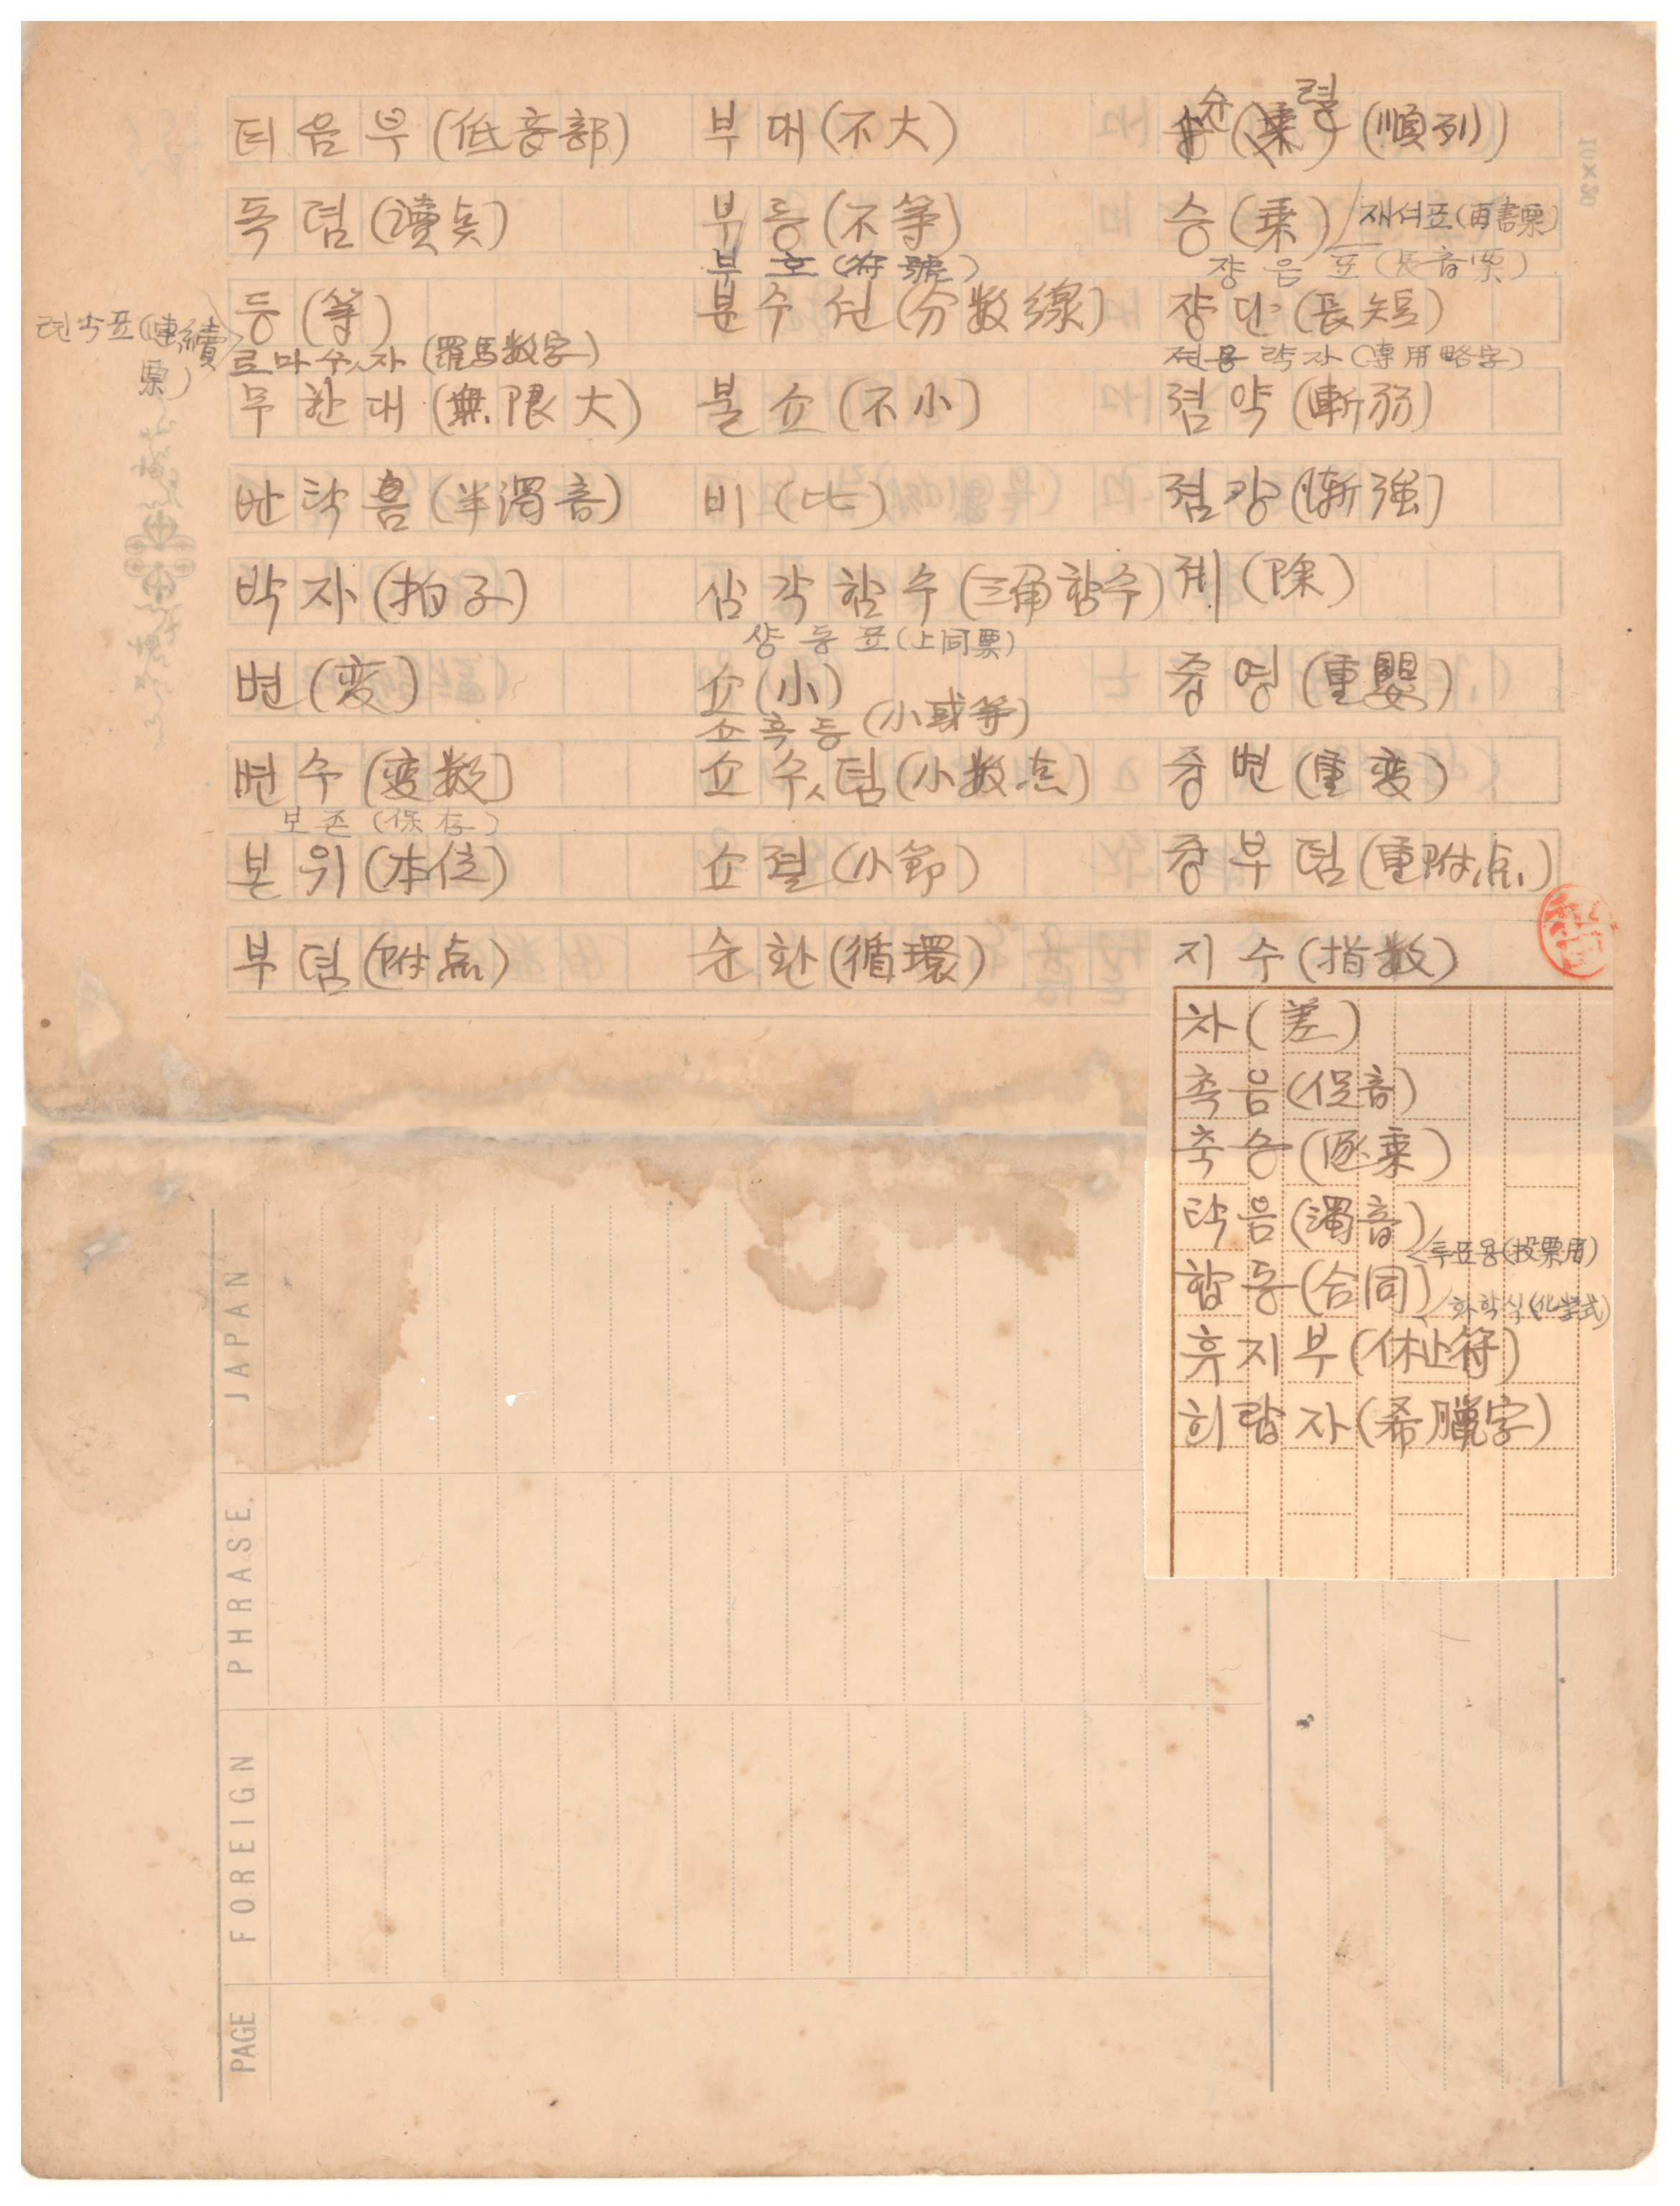 뎌음부(低音部)
독뎜(讀点)
등(等)
련속표(連続票)
로마수자(羅馬数字)
무한대(無限大)
반탁음(半濁音)
박자(拍子)
변(変)
변수(変数)
보존(保存)
본위(本位)
부뎜(附点)
부대(不大)
부등(不等)
부호(符號)
분수선(分数線)
불쇼(不小)
비(比)
삼각함수(三角함수)
샹동표(上同票)
쇼(小)
쇼혹등(小或等)
쇼수뎜(小数点)
쇼졀(小節)
순환(循環)
순렬(順列)
승(乗)
재서표(再書票)
쟝음표(長音票)
쟝단(長短)
젼용략자(専用略字)
졈약(漸弱)
졈강(漸強)
제(除)
즁영(重嬰)
즁변(重変)
즁부뎜(重附点)
지수(指数)
차(差)
촉음(促音)
축승(逐乗)
탁음(濁音)
투표용(投票用)
합동(合同)
화학식(化学式)
휴지부(休止符)
희랍자(希臘字)
10×20
JAPAN
PHRASE.
FOREIGN
PAGE